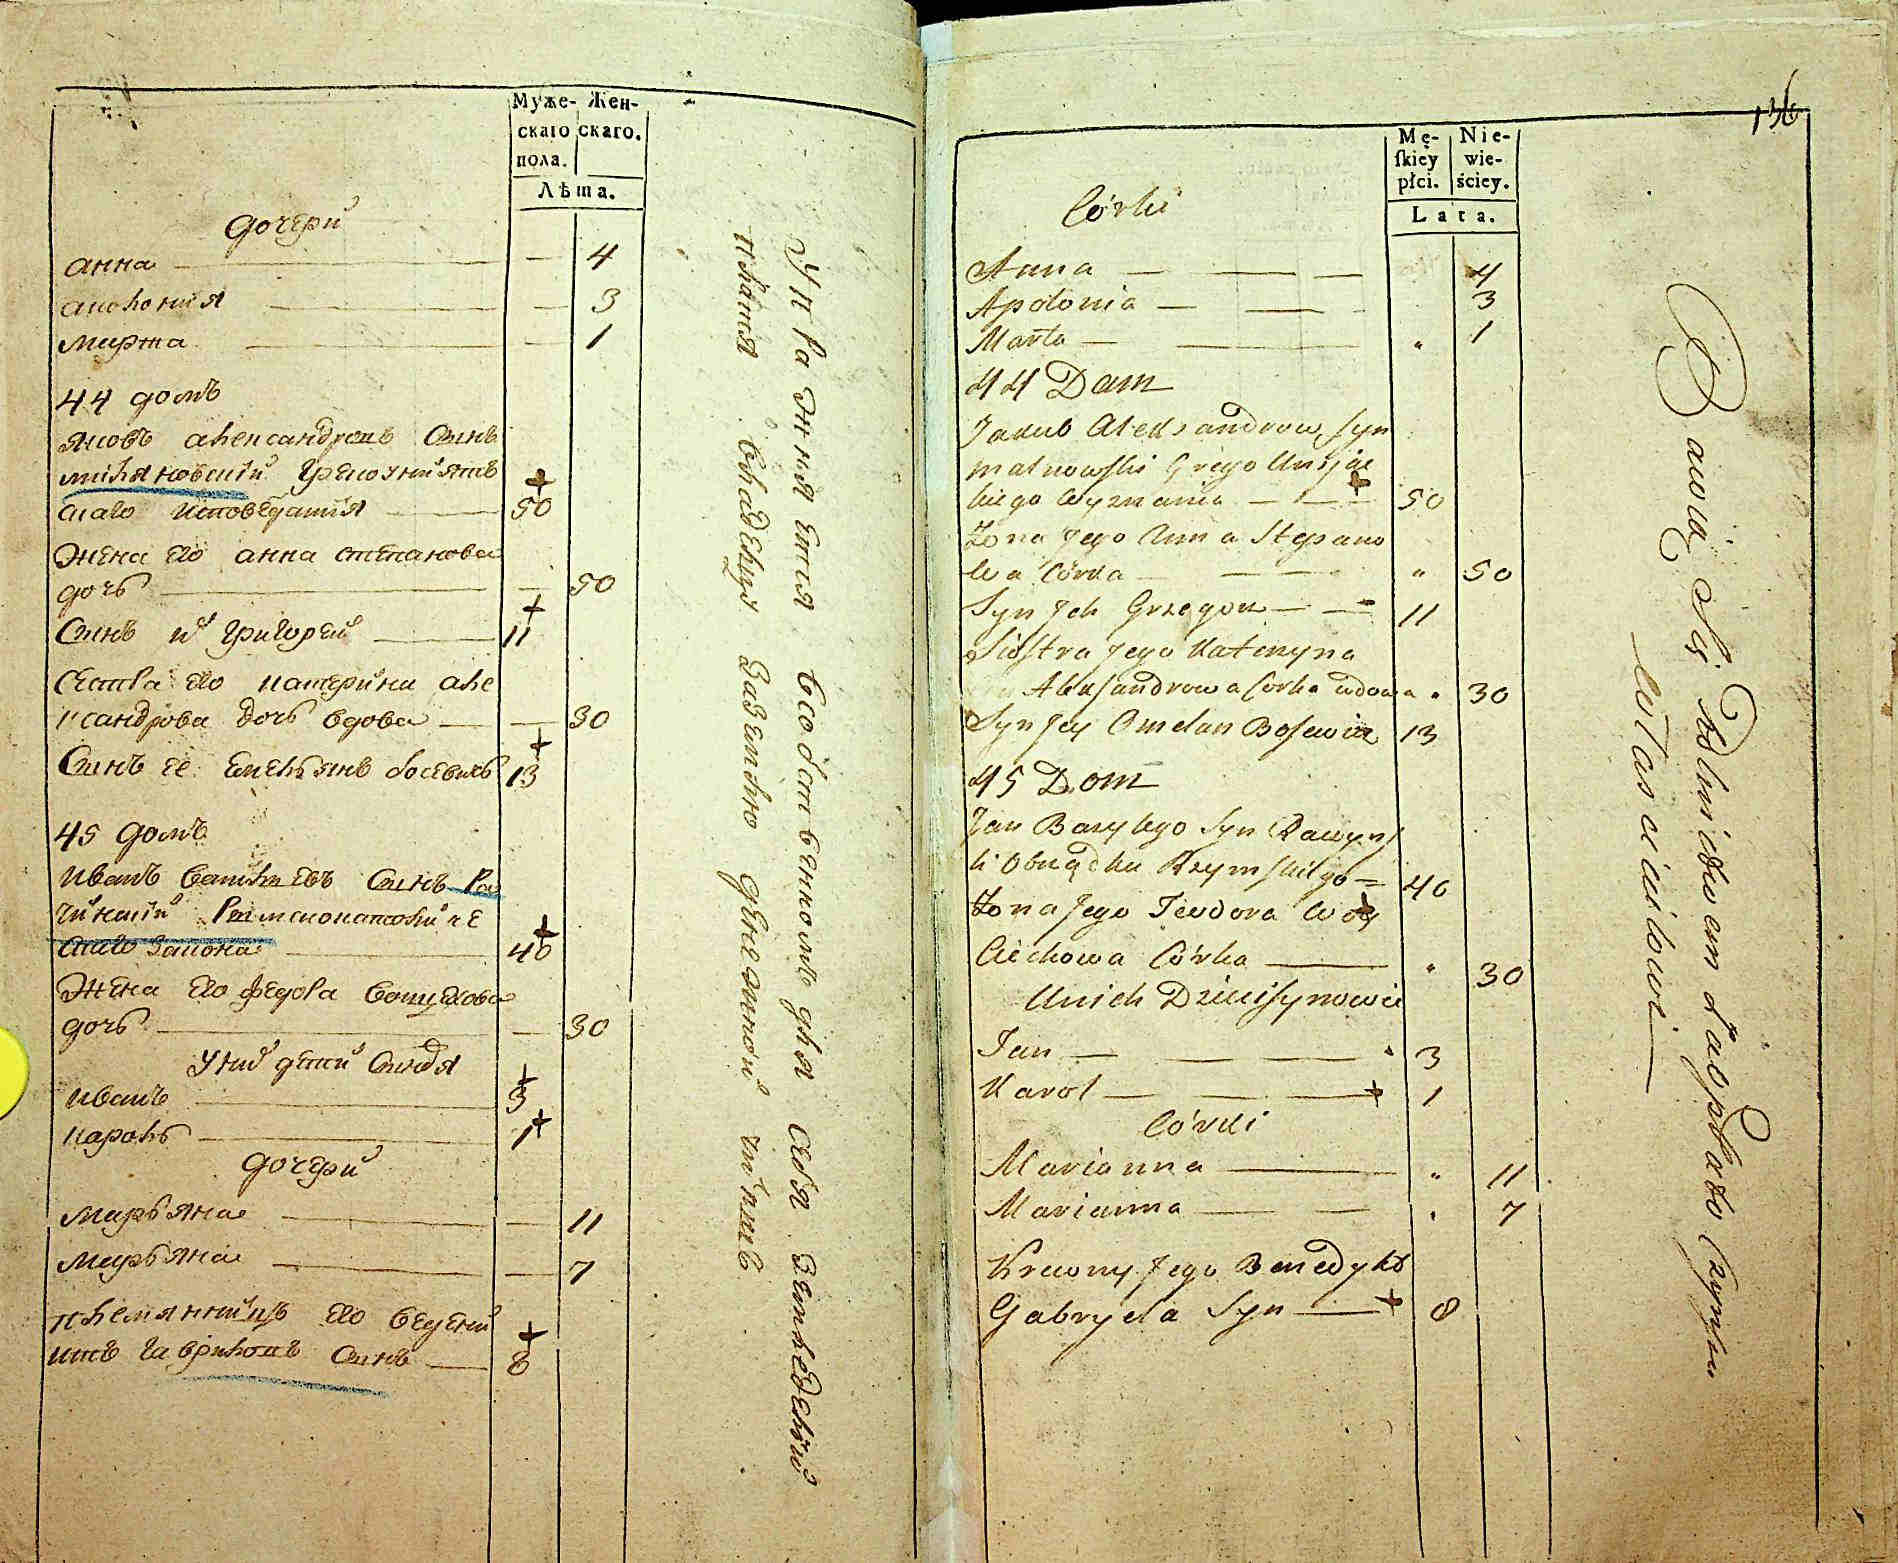 Муже-
скаго
пола.
Жен-
скаго.
Лѣта.
дочери
анна 4
аполония 3
марта 1
44 домъ
яковъ александровъ сынъ
грекоуниятъ
скаго исповедания 50
жена его анна степанова
дочь 50
сынъ их григорей 11
сестра его катерина але
ксандрова дочь вдова 30
сынъ ее емельянъ босевичъ 13
45 домъ
иванъ васильевъ сынъ ра
чинский римскокатоличе
скаго закона 40
жена его федора воицехова
дочь 30
у них дети сыновя
иванъ 3
кароль 1
дочери
марьяна 11
марьяна 7
племянникъ его бенеди
ктъ гаврилов сынъ 8
упражнения
всобственномъ для себя земледелии
владельцу
136
Mę-
ſkiey
płci.
Nie-
wie-
ściey.
Lata.
Córki
Anna 4
Apolonia 3
Marta 1
44 Dom
Jakub Alexandrow syn
Grego Unijac
kiego wyznania 50
Żona Jego Anna Stepano
wa Córka " 50
Syn Jch Grzegorz 11
Siostra Jego Kateryna
Alexandrowa Corka wdowa " 30
Syn Jey Omelan Bosewicz 13
45 Dom
Jan Bazylego Syn Raczyns
ki Obrządku Rzymskiego 40
Żona Jego Teodora Woy
ciechowa Córka " 30
U nich Dzieci synowie
Jan 3
Karol 1
Córki
Marianna " 11
Marianna " 7
Krewny Jego Benedykt
Gabryela Syn 8
Bawią Się Rolnictwem